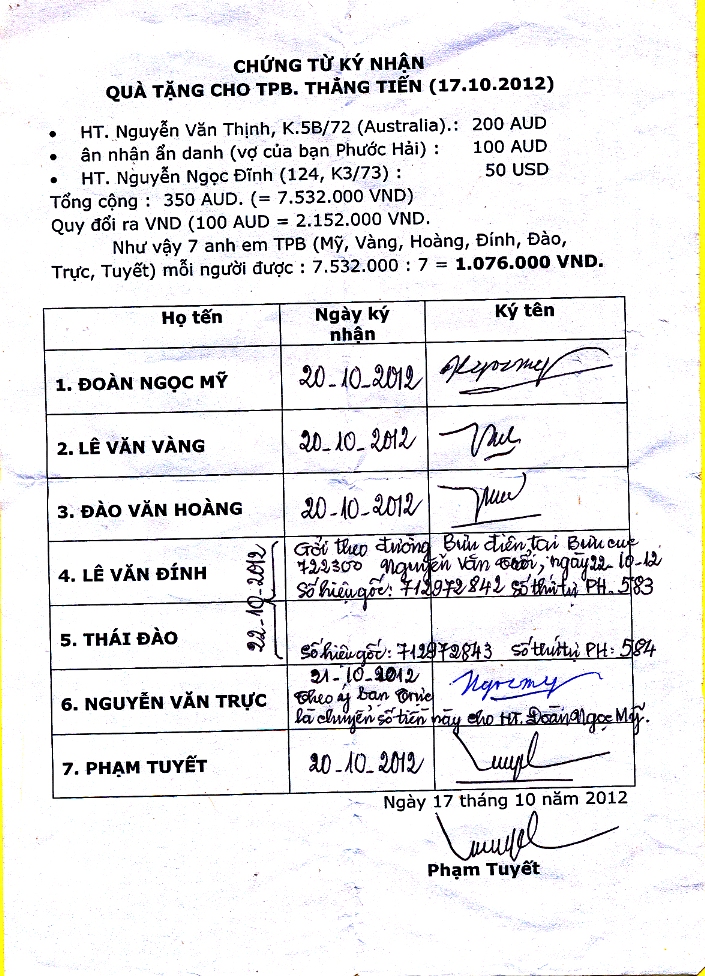 CHỨNG TỪ KÝ NHẬN
QUÀ TẶNG CHO TPB. THẲNG TIẾN (17.10.2012)
• HT. Nguyễn Văn Thịnh, K.5B/72 (Australia).: 200 AUD
• ân nhận ẩn danh (vợ của bạn Phước Hải) : 100 AUD
• HT. Nguyễn Ngọc Đĩnh (124, K3/73) : 50 USD
Tổng cộng : 350 AUD. (= 7.532.000 VND)
Quy đổi ra VND (100 AUD = 2.152.000 VND.
Như vậy 7 anh em TPB (Mỹ, Vàng, Hoàng, Đính, Đào,
Trực, Tuyết) mỗi người được : 7.532.000 : 7 = 1.076.000 VND.
Họ tến Ngày ký nhận Ký tên
1. ĐOÀN NGỌC MỸ 20-10-2012 Ngocmy
2. LÊ VĂN VÀNG 20-10-2012
3. ĐÀO VĂN HOÀNG 20-10-2012
Gởi theo đường Bưu điện tại Bưu cục
4. LÊ VĂN ĐÍNH 22-10-2012 722300 Nguyễn Văn ngày 22-10-12
Số hiệu gốc: 712972842 Số thứ tự PH. 583
5. THÁI ĐÀO Số hiệu gốc: 712972843 Số thứ tự PH: 584
21-10-2012 Ngocmy
6. NGUYỄN VĂN TRỰC Theo ý bạn Trực
là chuyển số tiền này cho HT. Đoàn Ngọc Mỹ.
7. PHẠM TUYẾT 20-10-2012
Ngày 17 tháng 10 năm 2012
Phạm Tuyết